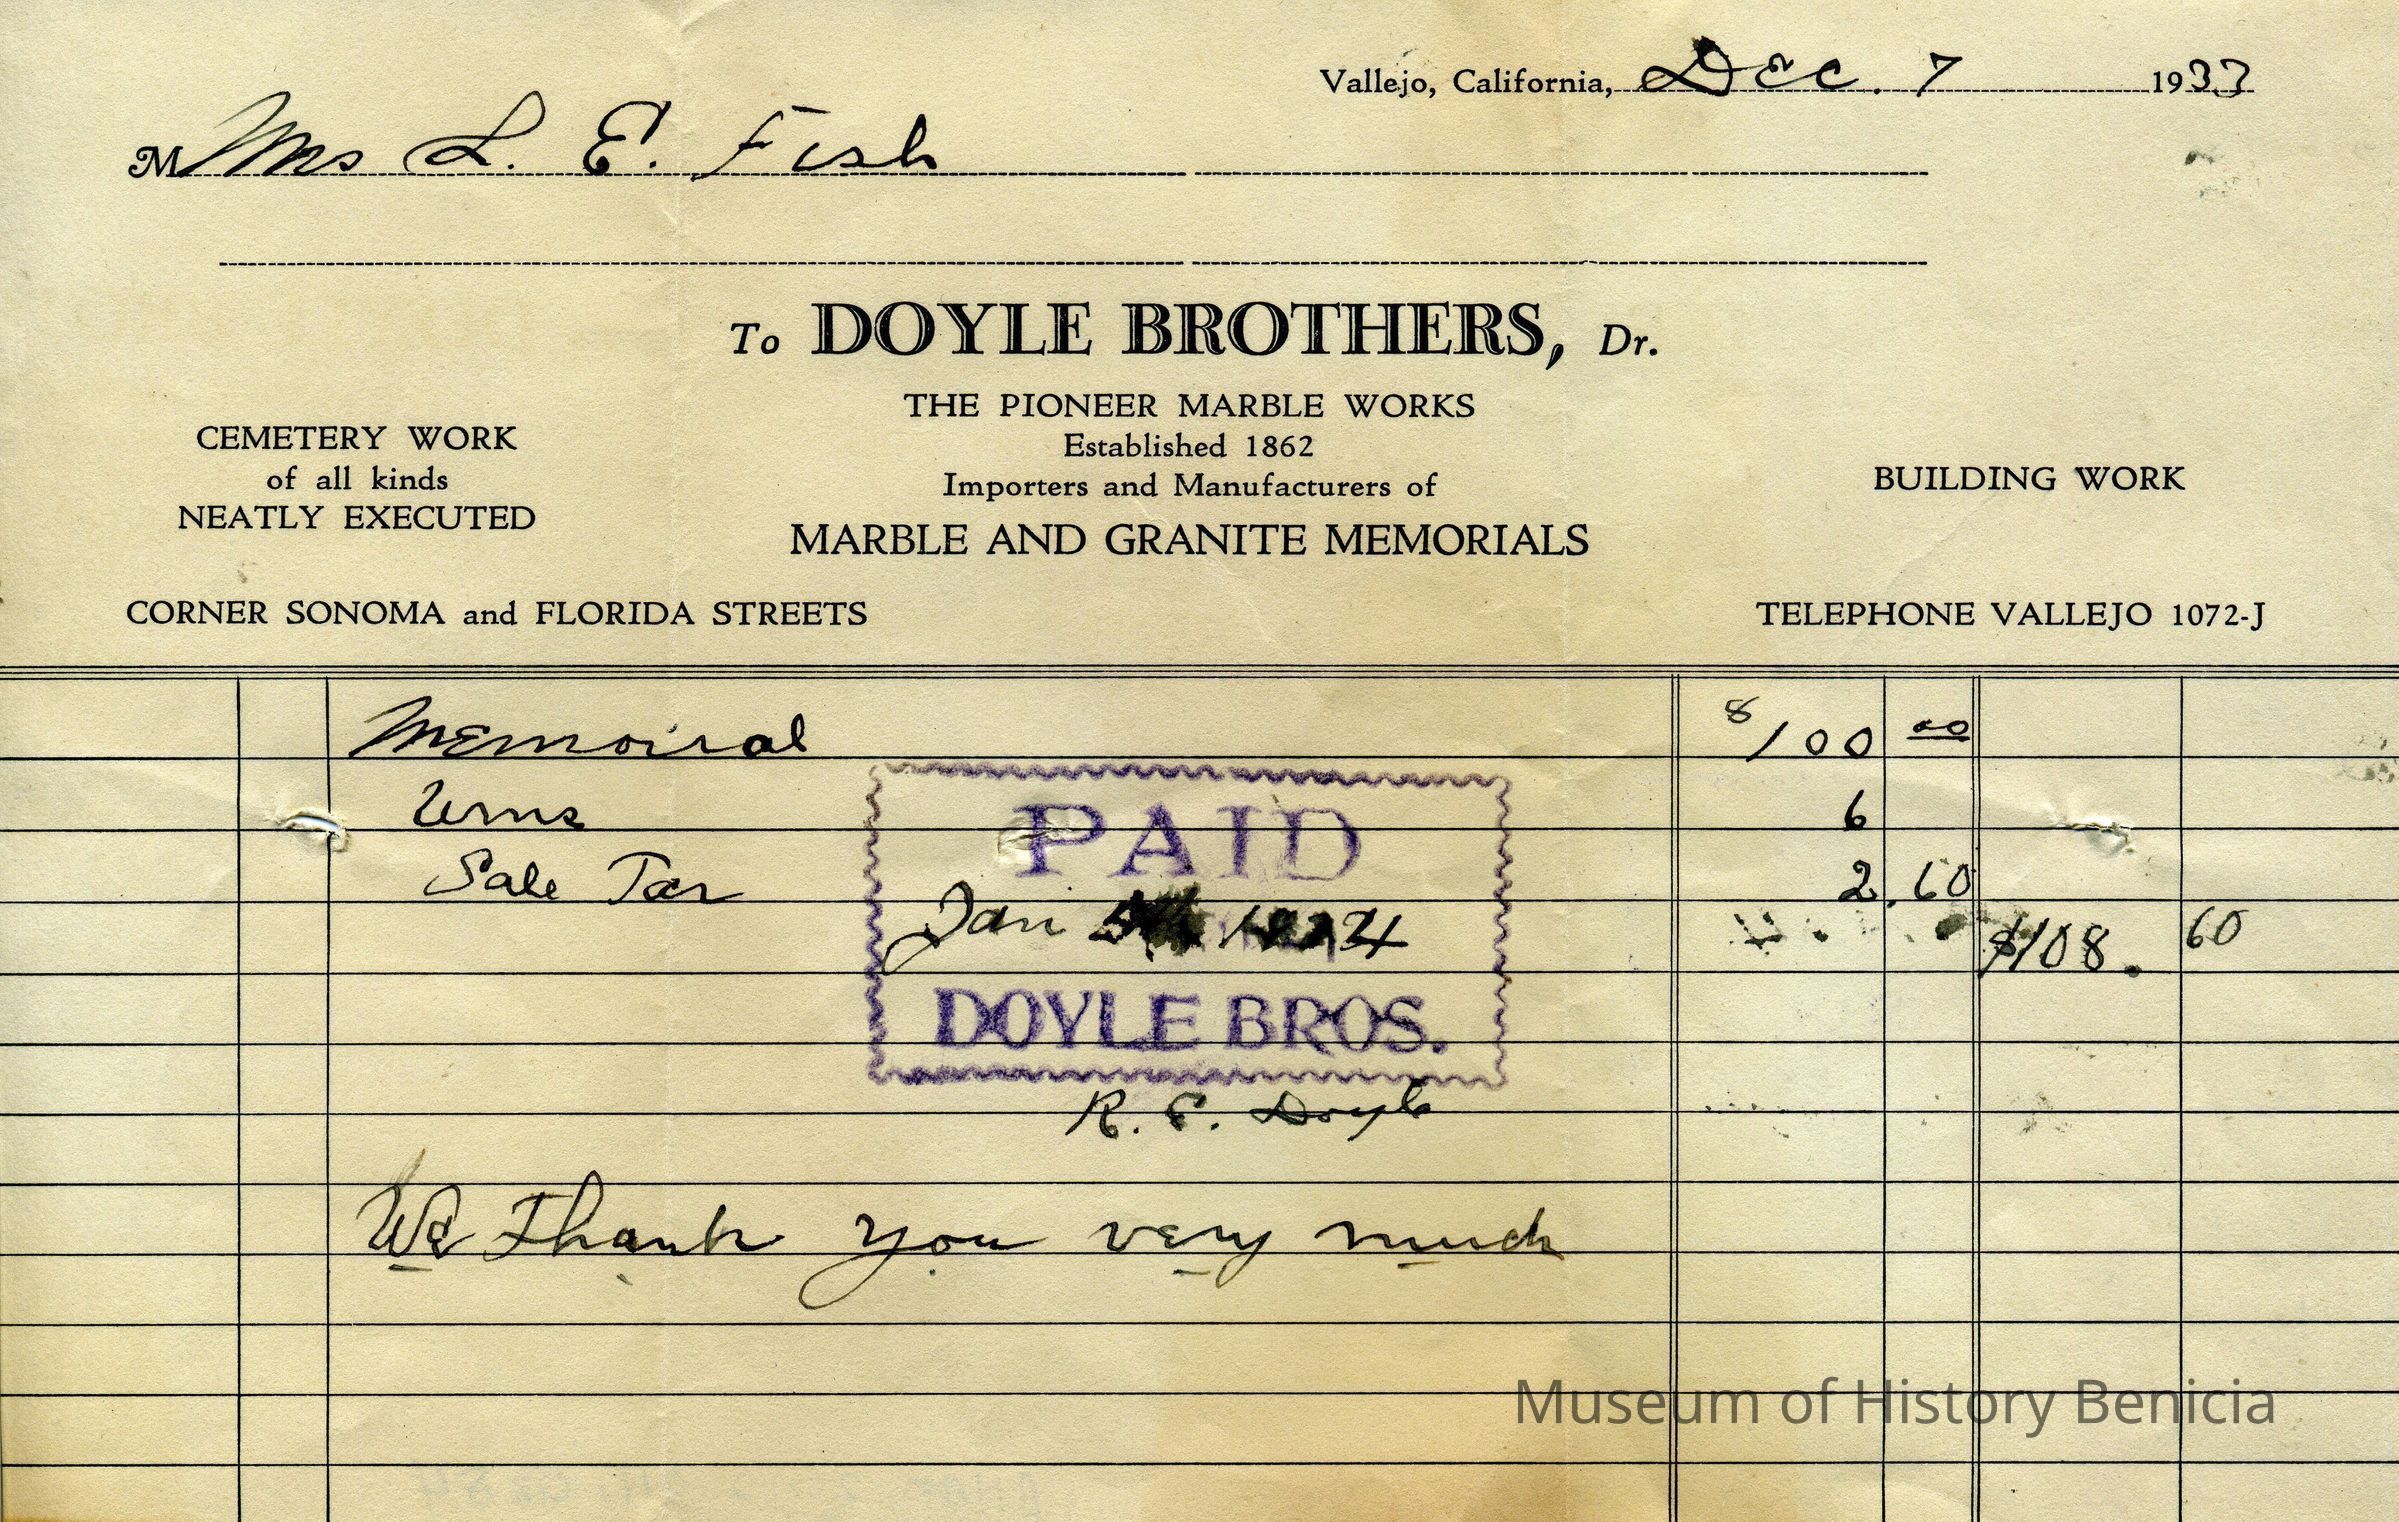 Vallejo, California, Dec. 7 1933
M Mrs L. E. Fish
To DOYLE BROTHERS, Dr.
THE PIONEER MARBLE WORKS
Established 1862
Importers and Manufacturers of
MARBLE AND GRANITE MEMORIALS
CEMETERY WORK
of all kinds
NEATLY EXECUTED
BUILDING WORK
CORNER SONOMA and FLORIDA STREETS
TELEPHONE VALLEJO 1072-J
Memoiral $100 00
Urns 6
Sale Tax 2.60
$108. 60
PAID
Jan 1934
DOYLE BROS.
R. E. Doyle
We Thank you very much
Museum of History Benicia